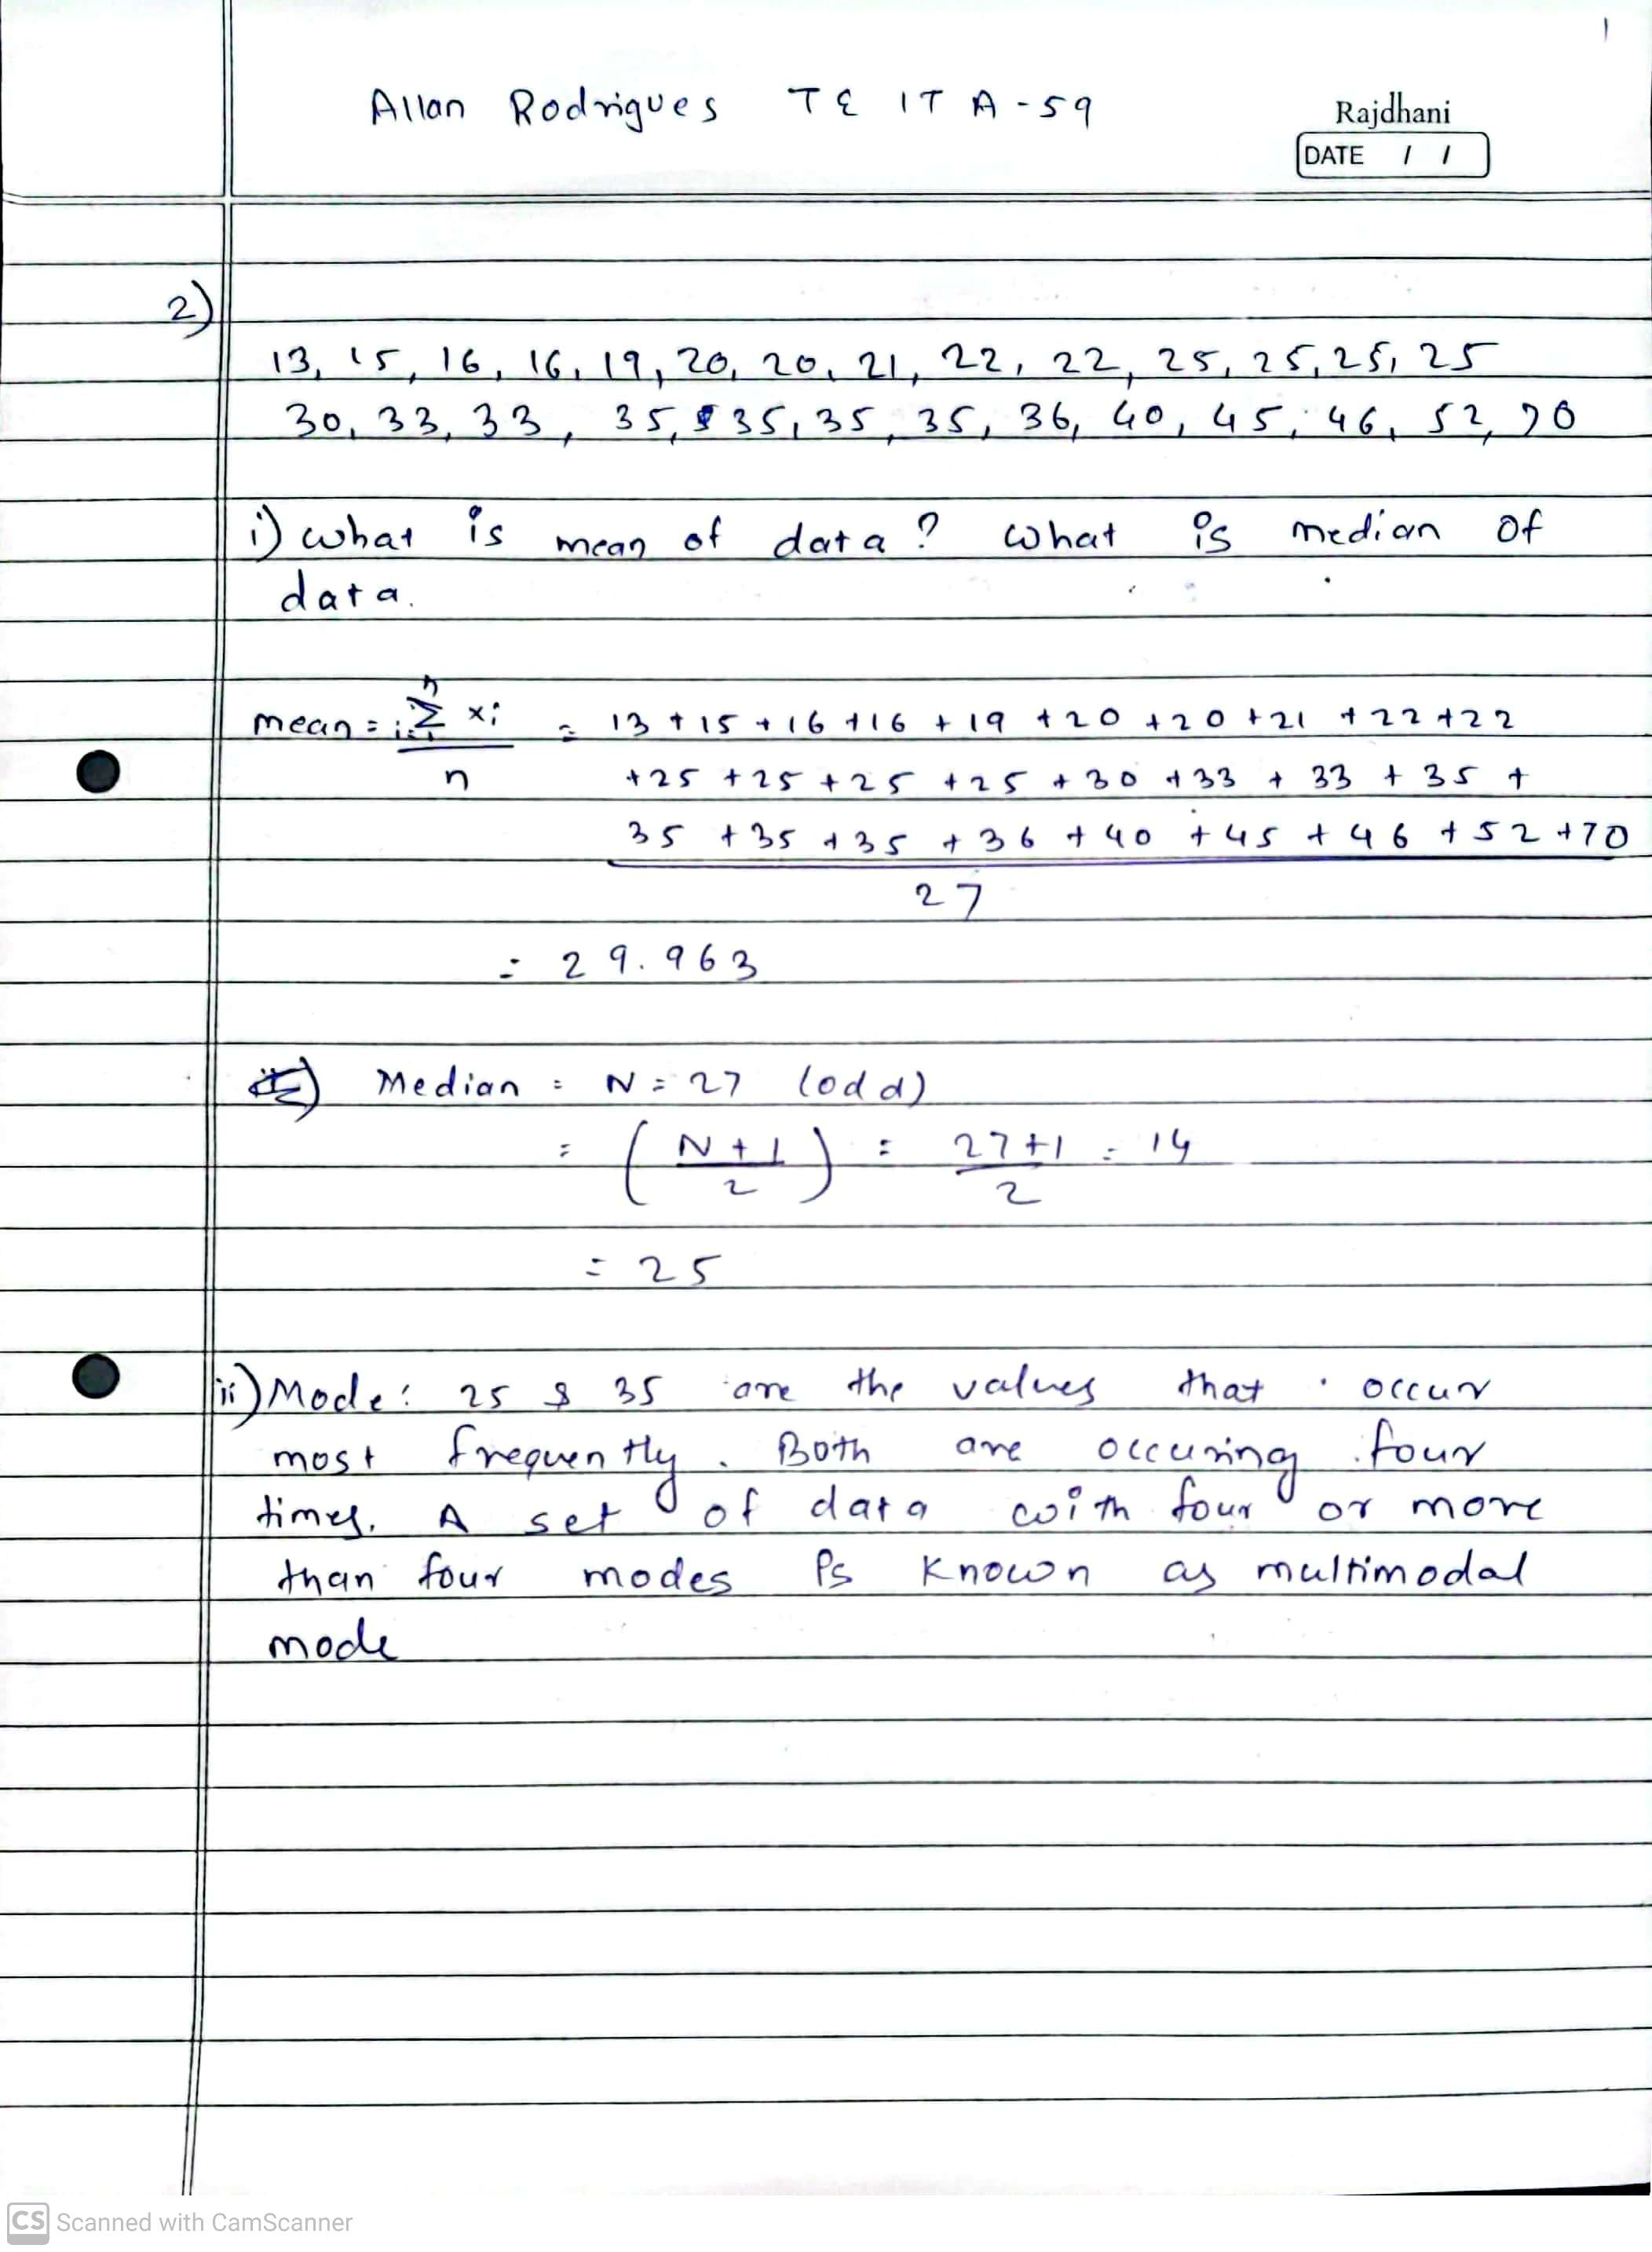 1
Allan Rodrigues TE IT A-59
Rajdhani
DATE / /
2)
13, 15, 16, 16, 19, 20, 20, 21, 22, 22, 25, 25, 25, 25
30, 33, 33, 35, 35, 35, 35, 36, 40, 45, 46, 52, 70
i) what is mean of data? what is median of
data.
mean = n∑i=1 xi / n = 13 + 15 + 16 + 16 + 19 + 20 + 20 + 21 + 22 + 22
+ 25 + 25 + 25 + 25 + 30 + 33 + 33 + 35 +
35 + 35 + 35 + 36 + 40 + 45 + 46 + 52 + 70
27
= 29.963
Median = N = 27 (odd)
= (N+1 / 2) = 27+1 / 2 = 14
= 25
ii) Mode: 25 & 35 are the values that occur
most frequently. Both are occuring four
times. A set of data with four or more
than four modes is known as multimodal
mode
CS Scanned with CamScanner